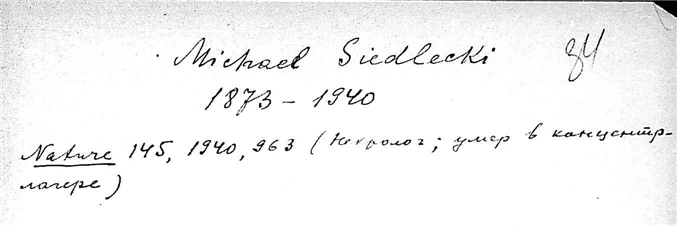 Michael Siedlecki 84
1873 – 1940
Nature 145, 1940, 963 (Некролог; умер в концентр-
лагере)